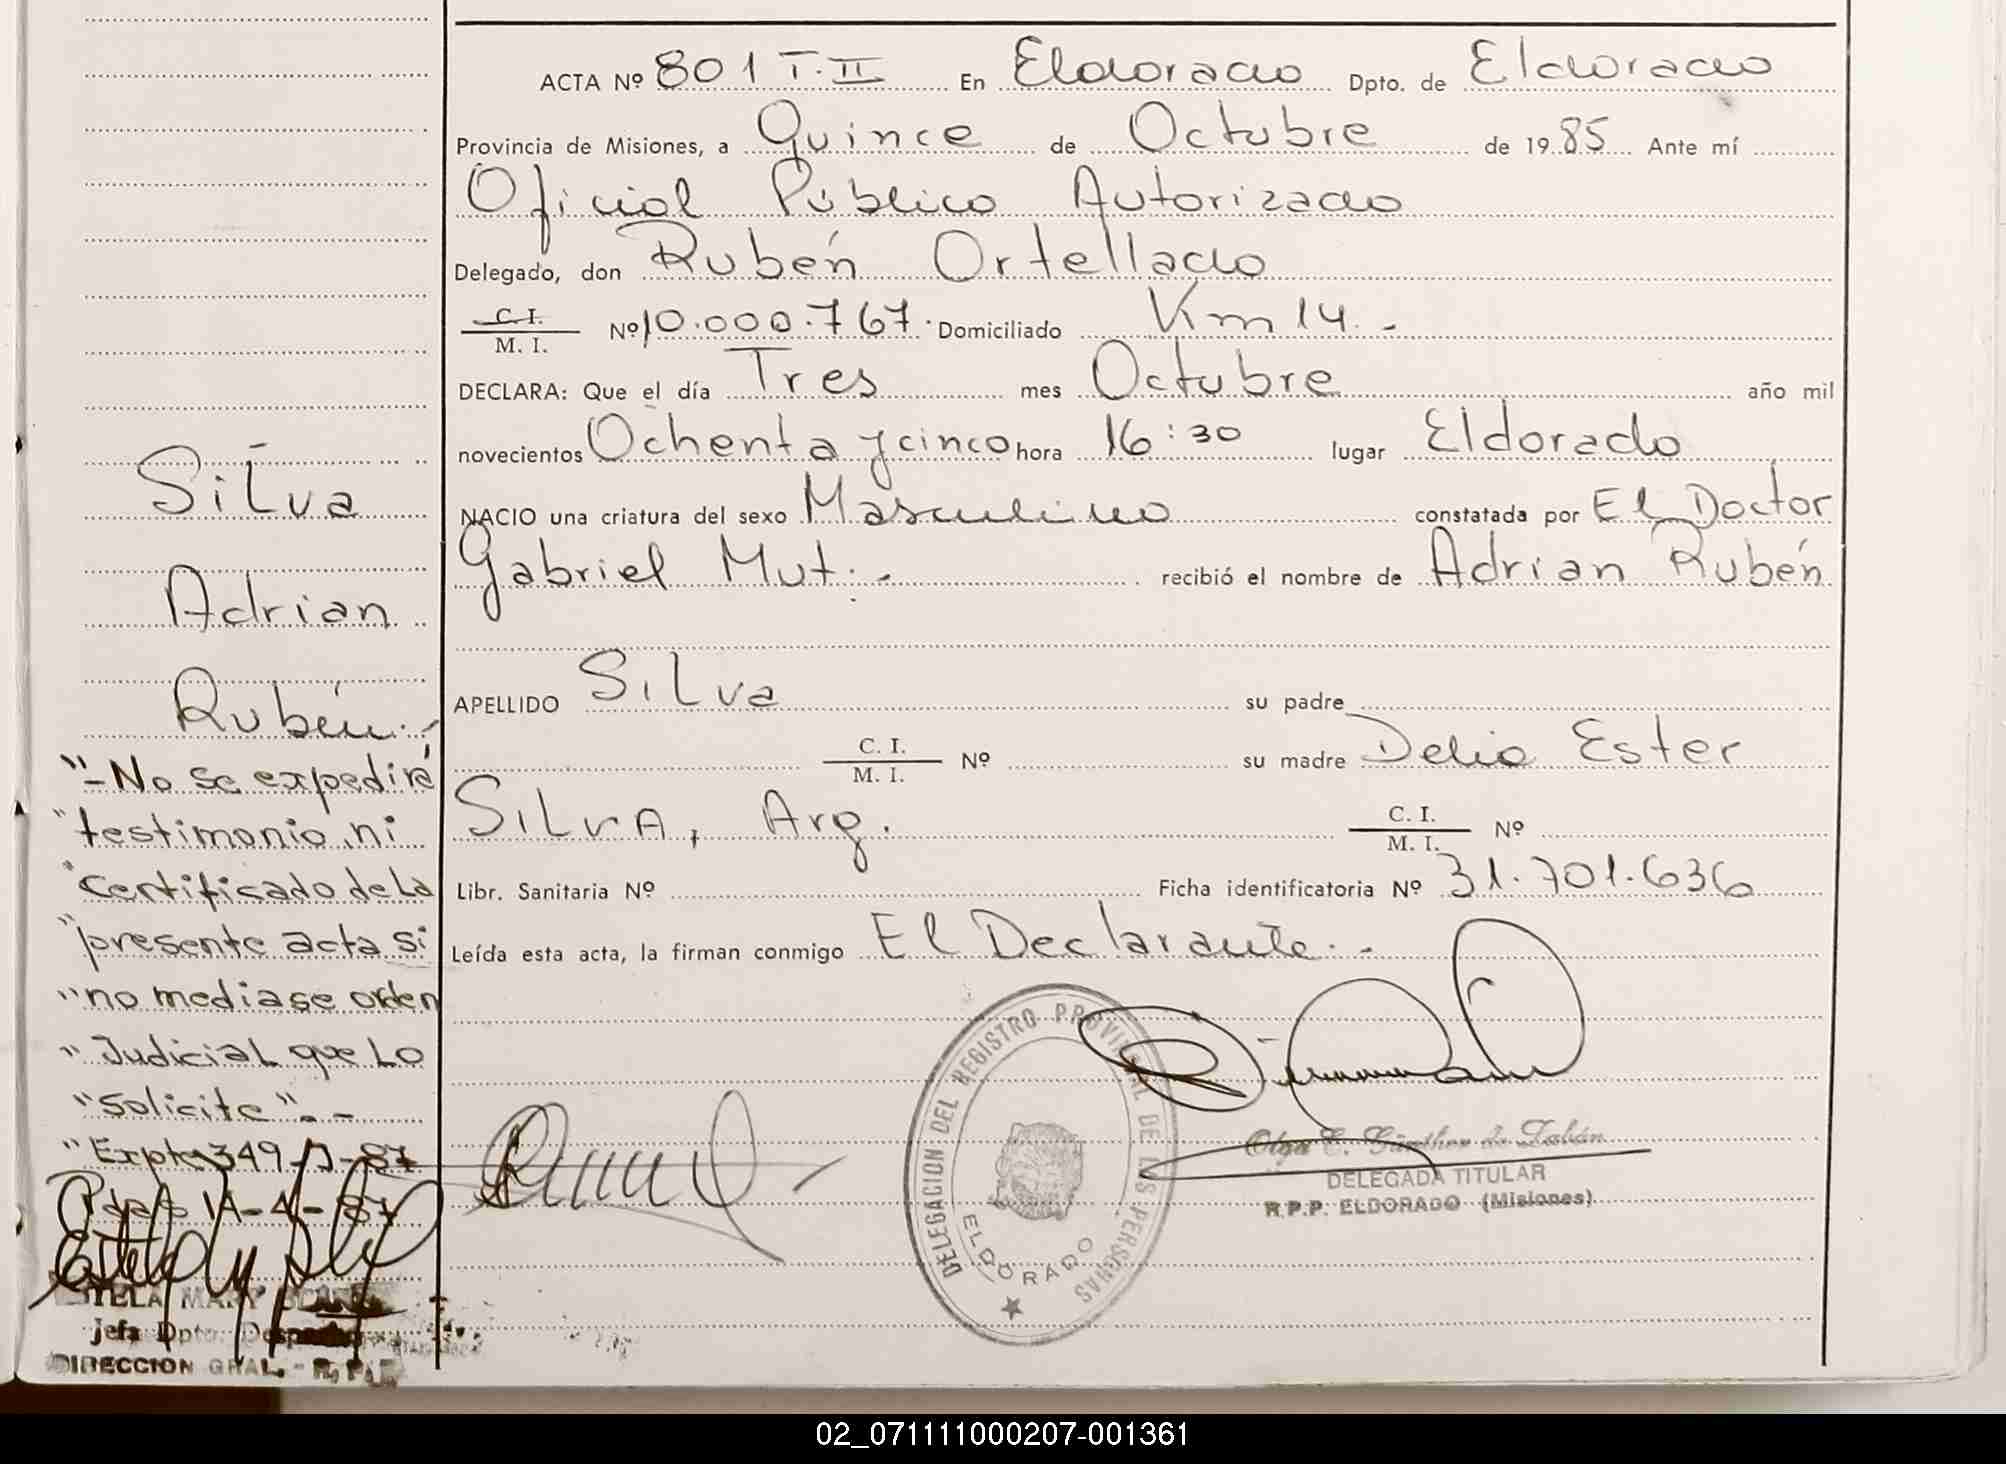 ACTA Nº 801 T. II En Eldorado Dpto. de Eldorado
Provincia de Misiones, a Quince de Octubre de 1985 Ante mí
Oficial Público Autorizado
Delegado, don Rubén Ortellado
C. I. / M. I. Nº 10.000.767. Domiciliado Km 14.-
DECLARA: Que el día Tres mes Octubre año mil
novecientos Ochenta y cinco hora 16:30 lugar Eldorado
NACIO una criatura del sexo Masculino constatada por El Doctor
Gabriel Mut.- recibió el nombre de Adrian Rubén
APELLIDO Silva su padre
C. I. / M. I. Nº su madre Delia Ester
Silva, Arg. C. I. / M. I. Nº
Libr. Sanitaria Nº Ficha identificatoria Nº 31.701.636
Leída esta acta, la firman conmigo El Declarante.-
Silva
Adrian
Rubén.-
"-No se expedirá
"testimonio ni
"certificado de la
"presente acta si
"no mediase orden
"Judicial que lo
"solicite".-
"Expte 349-
14-4-87
MARY
Jefa Dpto. Despacho
DIRECCION GRAL. - R. P.
DELEGACION DEL REGISTRO PROVINCIAL DE LAS PERSONAS
ELDORADO
Olga E. Günther de
DELEGADA TITULAR
R.P.P. ELDORADO (Misiones)
02_071111000207-001361